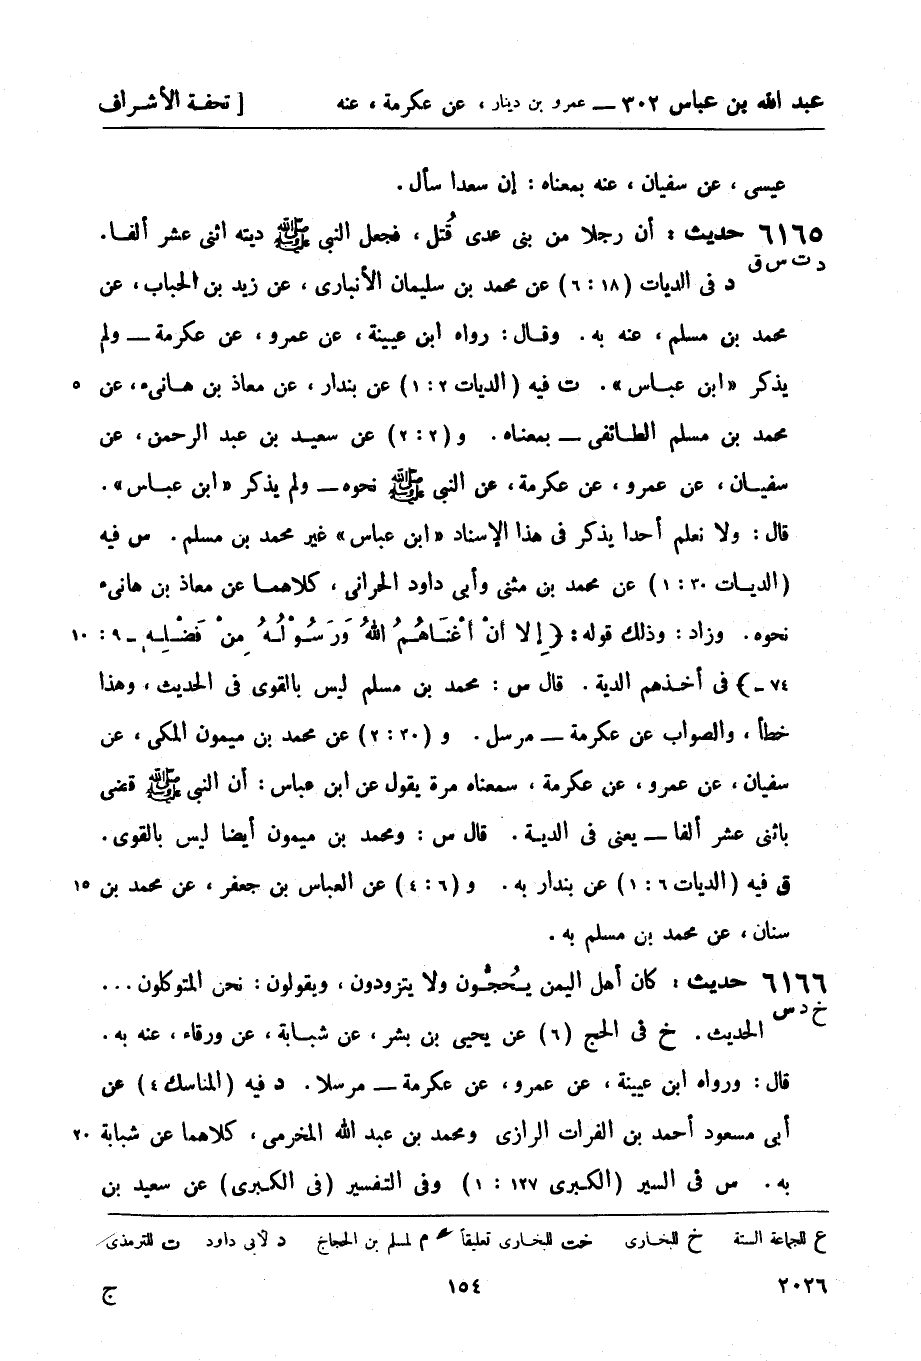 عبد الله بن عباس ٣٠٢ — عمرو بن دينار ، عن عكرمة ، عنه [ تحفة الأشراف
عيسى ، عن سفيان ، عنه بمعناه : إن سعدا سأل .
٦١٦٥ حديث : أن رجلا من بنى عدى قُتل ، فجعل النبى ﷺ ديته اثنى عشر ألفا.
د ت س ق
د فى الديات (١٨ : ٦) عن محمد بن سليمان الأنبارى ، عن زيد بن الحباب، عن
محمد بن مسلم ، عنه به . وقال : رواه ابن عيينة ، عن عمرو ، عن عكرمة — ولم
يذكر «ابن عباس» . ت فيه (الديات ٢ : ١) عن بندار ، عن معاذ بن هانىء، عن ٥
محمد بن مسلم الطائفى — بمعناه . و (٢ : ٢) عن سعيد بن عبد الرحمن ، عن
سفيان ، عن عمرو ، عن عكرمة ، عن النبى ﷺ نحوه — ولم يذكر «ابن عباس» .
قال : ولا نعلم أحدا يذكر فى هذا الإسناد «ابن عباس» غير محمد بن مسلم . س فيه
(الديات ٣٠ : ١) عن محمد بن مثنى وأبى داود الحرانى ، كلاهما عن معاذ بن هانىء
نحوه . وزاد : وذلك قوله : {إِلا أَنْ أَغْنَاهُمُ اللهُ وَرَسُولُهُ مِنْ فَضْلِهِ - ٩ : ١٠
٧٤ -} فى أخذهم الدية . قال س : محمد بن مسلم ليس بالقوى فى الحديث ، وهذا
خطأ ، والصواب عن عكرمة — مرسل . و (٣٠ : ٢) عن محمد بن ميمون المكى ، عن
سفيان ، عن عمرو ، عن عكرمة ، سمعناه مرة يقول عن ابن عباس : أن النبى ﷺ قضى
باثنى عشر ألفا — يعنى فى الدية . قال س : ومحمد بن ميمون أيضا ليس بالقوى .
ق فيه (الديات ٦ : ١) عن بندار به . و (٦ : ٤) عن العباس بن جعفر ، عن محمد بن ١٥
سنان ، عن محمد بن مسلم به .
٦١٦٦ حديث : كان أهل اليمن يحُجُّون ولا يتزودون ، ويقولون : نحن المتوكلون ...
خ د س
الحديث . خ فى الحج (٦) عن يحيى بن بشر ، عن شبابة ، عن ورقاء ، عنه به .
قال : ورواه ابن عيينة ، عن عمرو ، عن عكرمة — مرسلا . د فيه (المناسك ٤) عن
أبى مسعود أحمد بن الفرات الرازى ومحمد بن عبد الله المخرمى ، كلاهما عن شبابة ٢٠
به . س فى السير (الكبرى ١٢٧ : ١) وفى التفسير (فى الكبرى) عن سعيد بن
ع للجماعة الستة خ للبخارى خت للبخارى تعليقاً م لمسلم بن الحجاج د لأبى داود ت للترمذى
٢٠٢٦ ١٥٤ ج